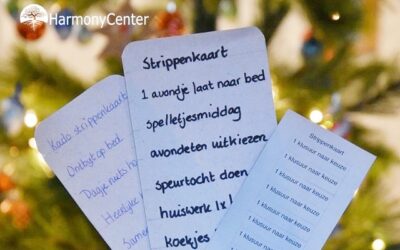 HarmonyCenter
Kado strippenkaart
Ontbijt op bed
Dagje niets
Heerlijk
Samen
Strippenkaart
1 avondje laat naar bed
spelletjesmiddag
avondeten uitkiezen
speurtocht doen
huiswerk 1x
koekjes
Strippenkaart
1 klusuur naar keuze
1 klusuur naar keuze
1 klusuur naar keuze
1 klusuur naar keuze
1 klusuur naar keuze
1 klusuur naar keuze
1 klusuur naar keuze